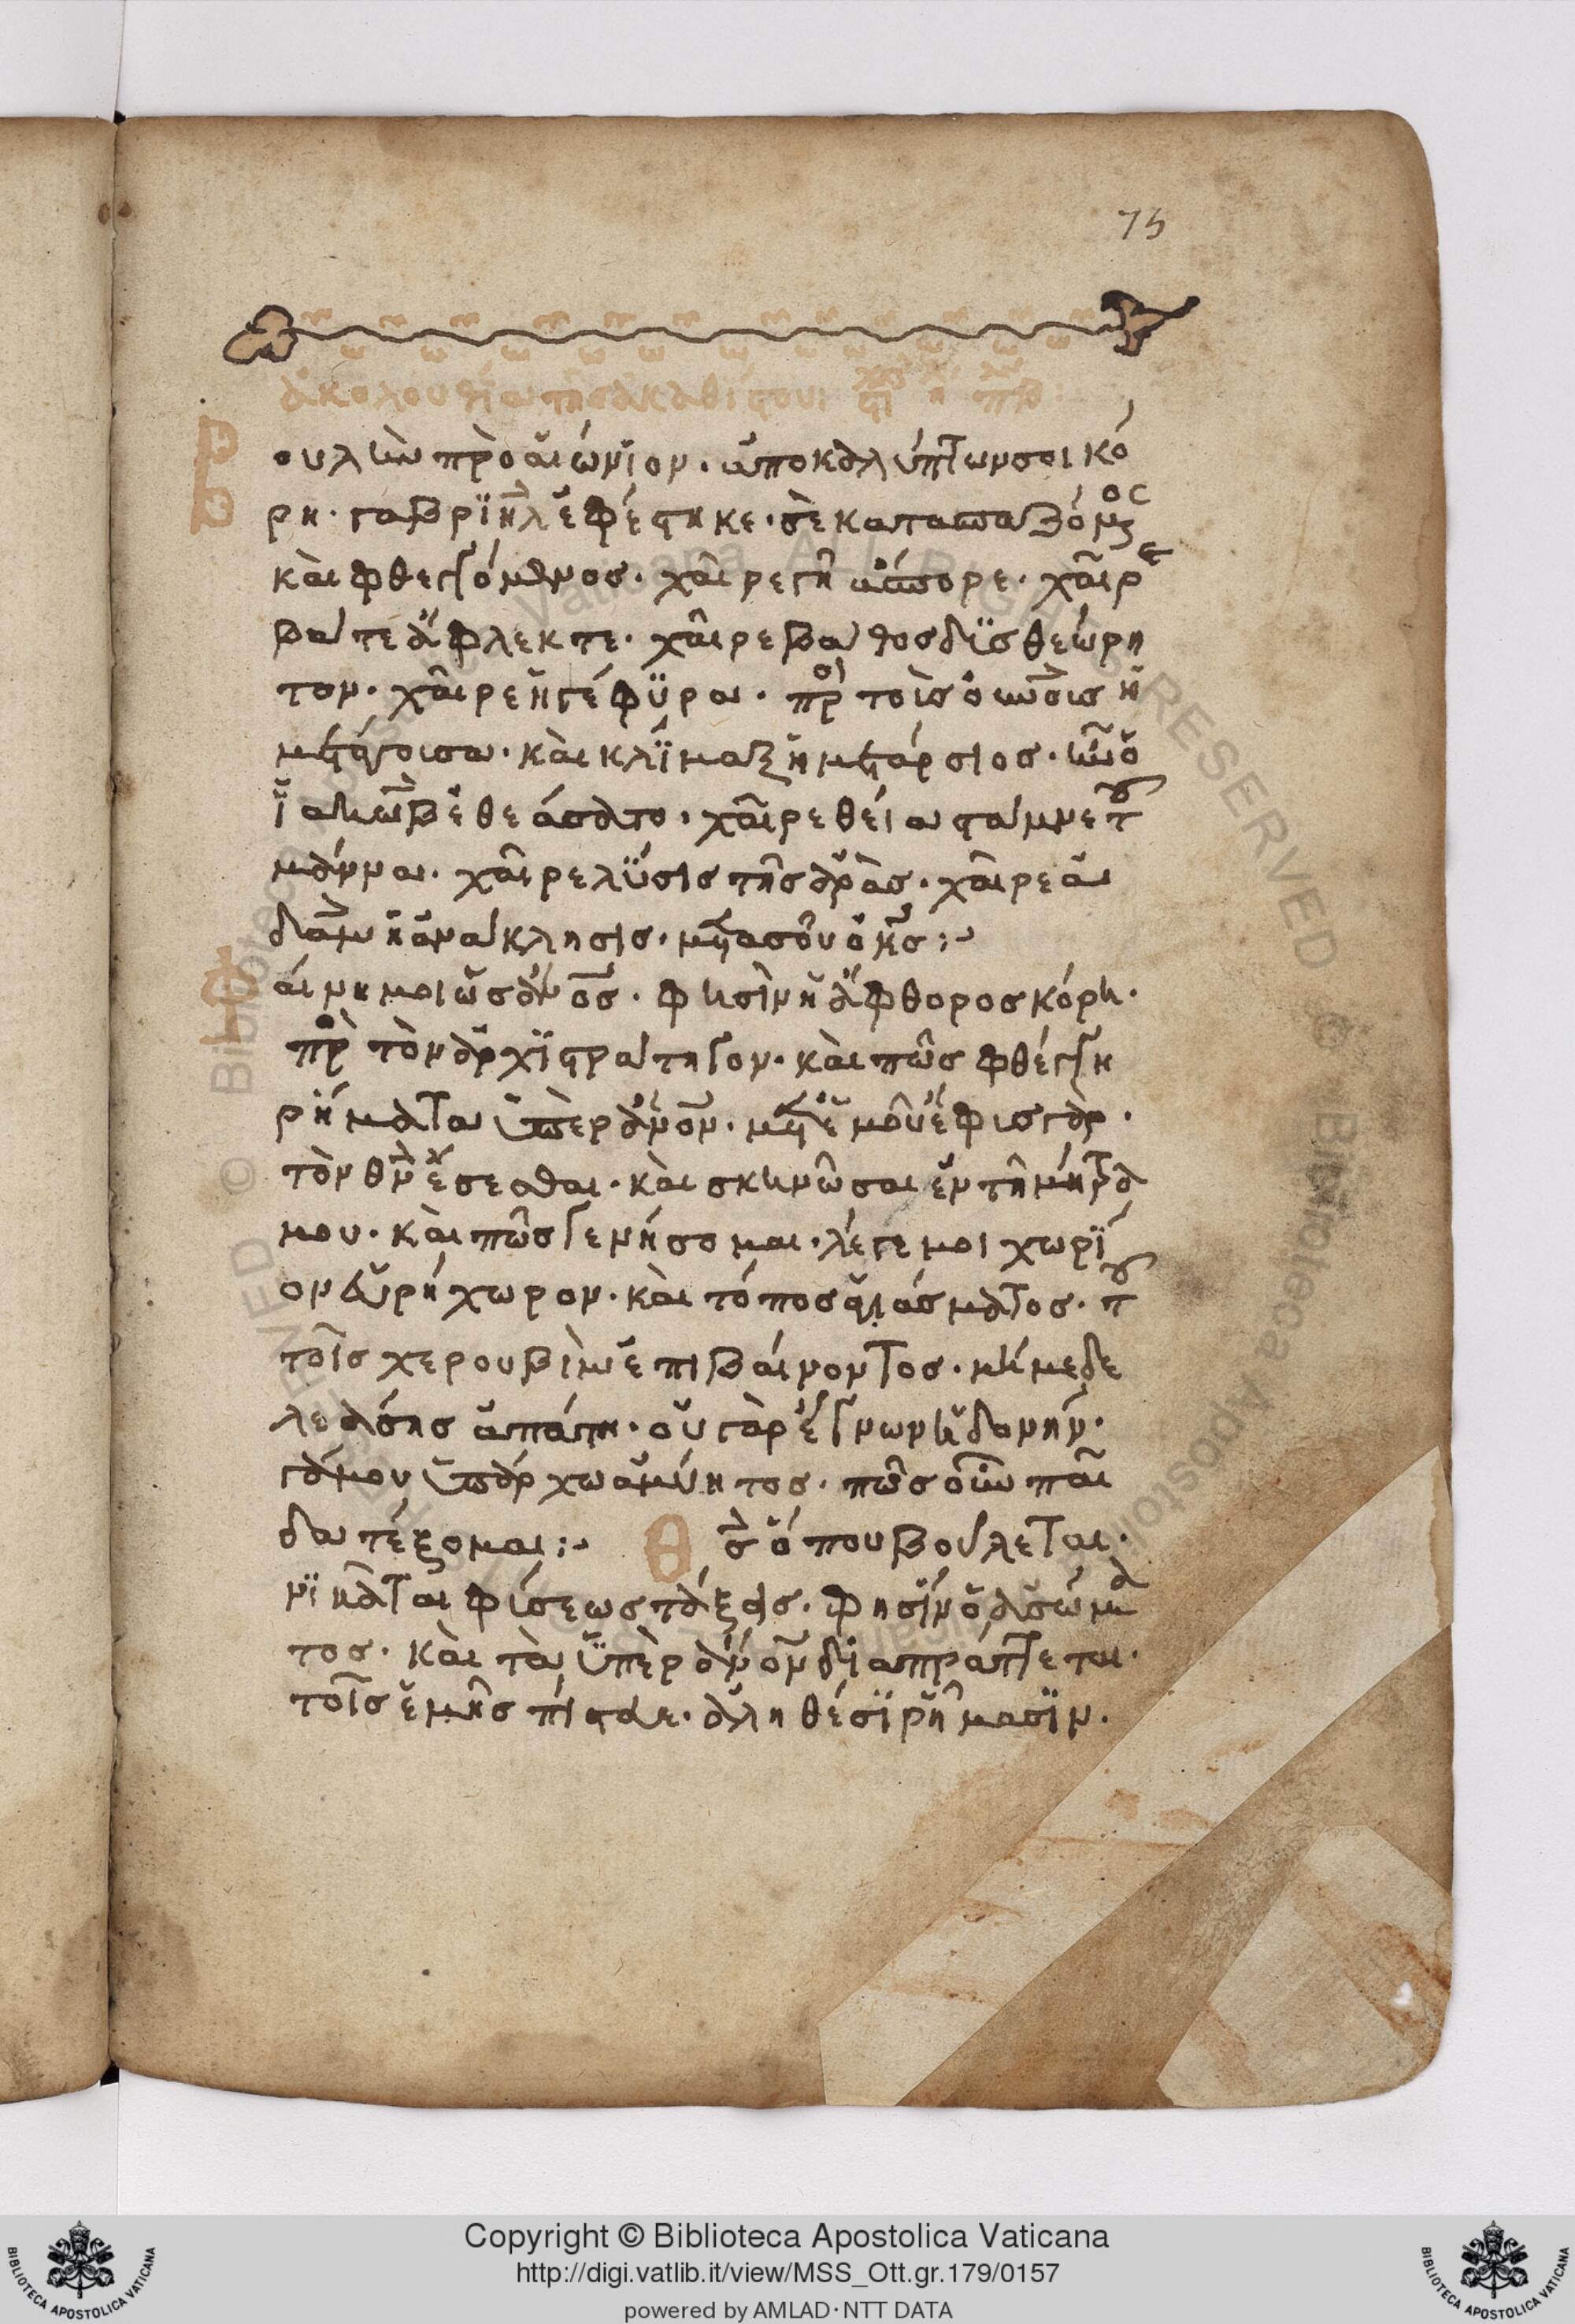 75
ἀκολουθία τῆς ἀκαθίστου
Βουλὴν προαιώνιον. ἀποκαλύπτων σοι κό
ρη. γαβριὴλ ἐφέστηκε. σὲ κατασπαζόμενος
καὶ φθεγγόμενος. χαῖρε γῆ ἄσπορε. χαῖρε
βάτε ἄφλεκτε. χαῖρε βάθος δϊσθεώρη
τον. χαῖρε ἡ γέφϋρα. πρὸς τοὺς οὐνοὺς ἡ
μετάγουσα. καὶ κλίμαξ ἡ μετάρσιος. ἣν ὁ
ἰακὼβ ἐθεάσατο. χαῖρε θεία στάμνε τοῦ
μάννα. χαῖρε λύσις τῆς ἀρᾶς. χαῖρε ἀ
δὰμ ἡ ἀνάκλησις. μετὰ σοῦ ὁ κς:~
Φαίνη μοι ὡς ἄνος. φησὶν ἡ ἄφθορος κόρη.
πρὸς τὸν ἀρχϊστράτηγον. καὶ πῶς φθέγγη
ρήματα ὑπὲρ ἄνον. μετ' ἐμοῦ ἔφισ γὰρ.
τὸν θν ἔσεσθαι. καὶ σκηνῶσαι ἐν τῆ μήτρα
μου. καὶ πῶς γενήσομαι. λέγε μοι χωρί
ον εὐρήχωρον. καὶ τόπος ἁγιάσματος. τοῦ
τοῖς χερουβὶμ ἐπιβαίνοντος. μή με δε
λεάσης ἀπάτη. οὐ γὰρ ἔγνων ἡδονήν.
γάμου ὑπάρχω ἀμύητος. πῶς οὖν παῖ
δα τέξομαι:~ Θς ὅπου βούλεται.
νικᾶται φύσεως τάξις. φησὶν ὁ ἀσώμα
τος. καὶ τὰ ὑπὲρ ἄνον διαπράττεται.
τοῖς ἐμῆς πίστευε. ἀληθέσϊ ρήμασϊν.
Copyright © Biblioteca Apostolica Vaticana
http://digi.vatlib.it/view/MSS_Ott.gr.179/0157
powered by AMLAD·NTT DATA
BIBLIOTECA APOSTOLICA VATICANA
BIBLIOTECA APOSTOLICA VATICANA